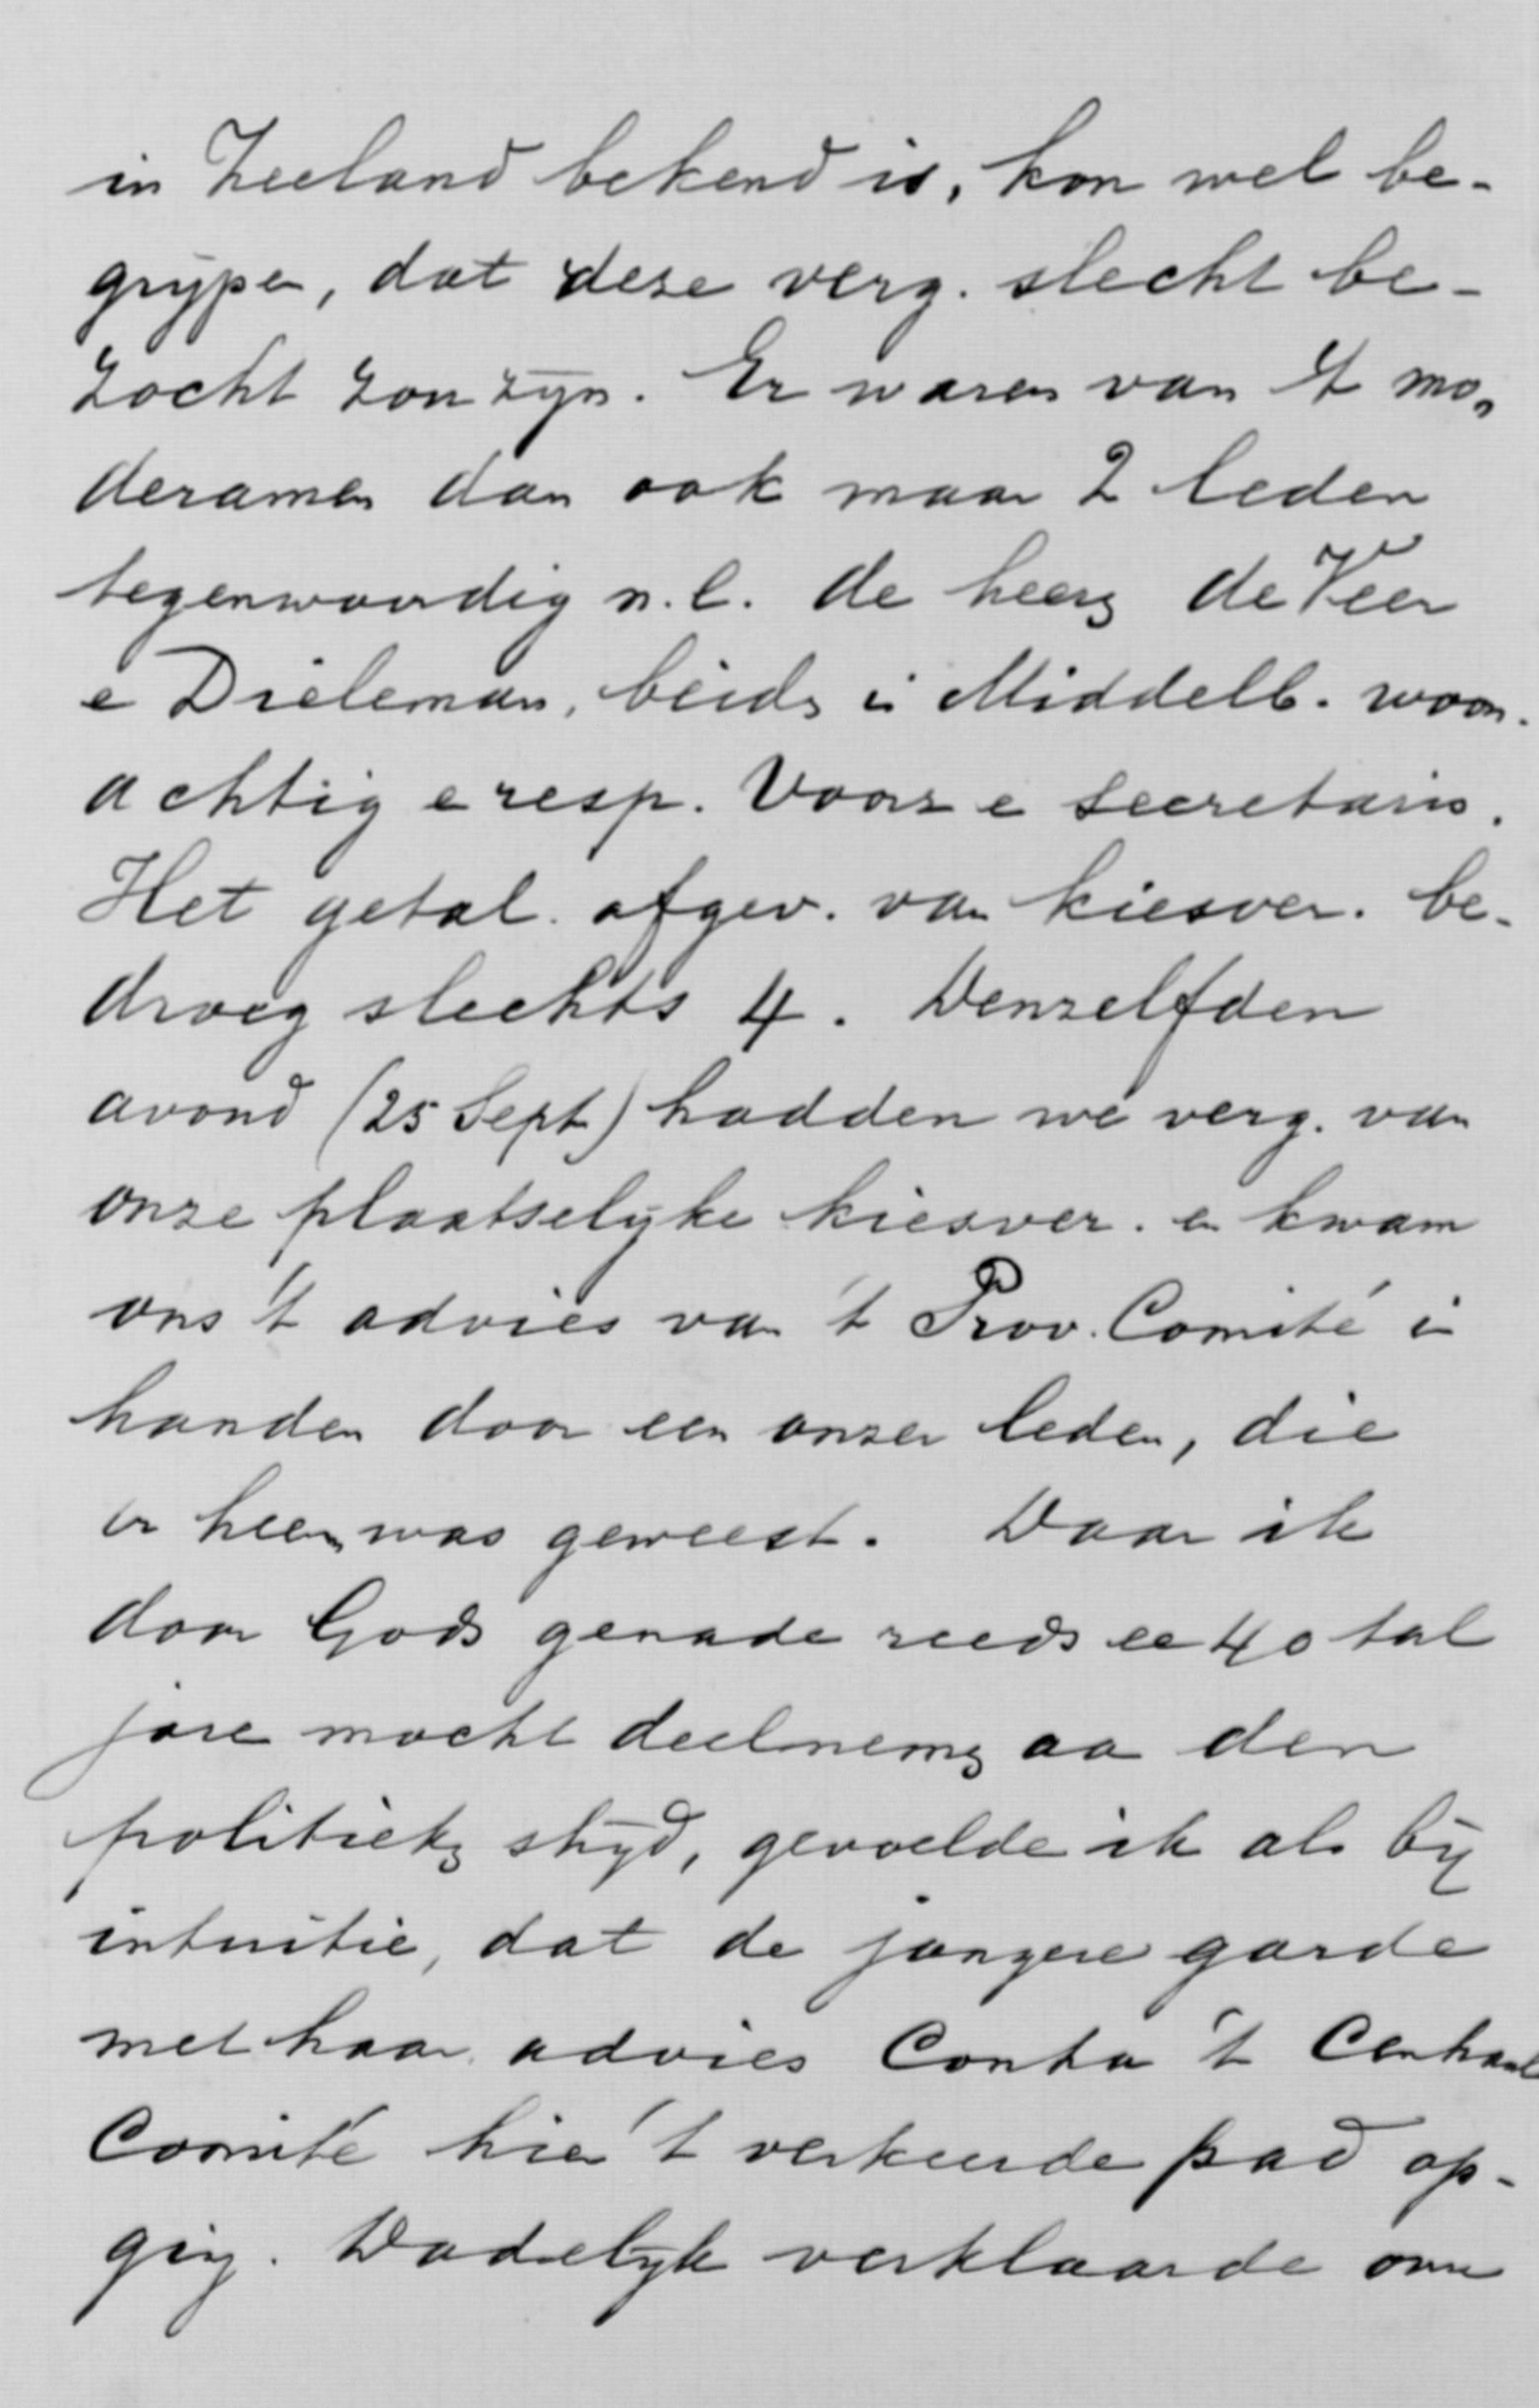 in Zeeland bekend is, kon wel be-
grijpen, dat deze verg. slecht be-
zocht zou zijn. Er waren van 't mo-
deramen dan ook maar 2 leden
tegenwoordig n.l. de heeren de Veer
en Dieleman, beiden in Middelb. woon-
achtig en resp. Voorz en Secretaris.
Het getal afgev. van kiesver. be-
droeg slechts 4. Denzelfden
avond (25 Sept) hadden we verg. van
onze plaatselijke kiesver. en kwam
ons 't advies van 't Prov. Comité in
handen door een onzer leden, die
er heen was geweest. Daar ik
door Gods genade reeds een 40 tal
jaren mocht deelnemen aan den
politieken strijd, gevoelde ik als bij
intuitie, dat de jongere garde
met haar advies Contra 't Centraal
Comité hier 't verkeerde pad op-
ging. Dadelijk verklaarde onze